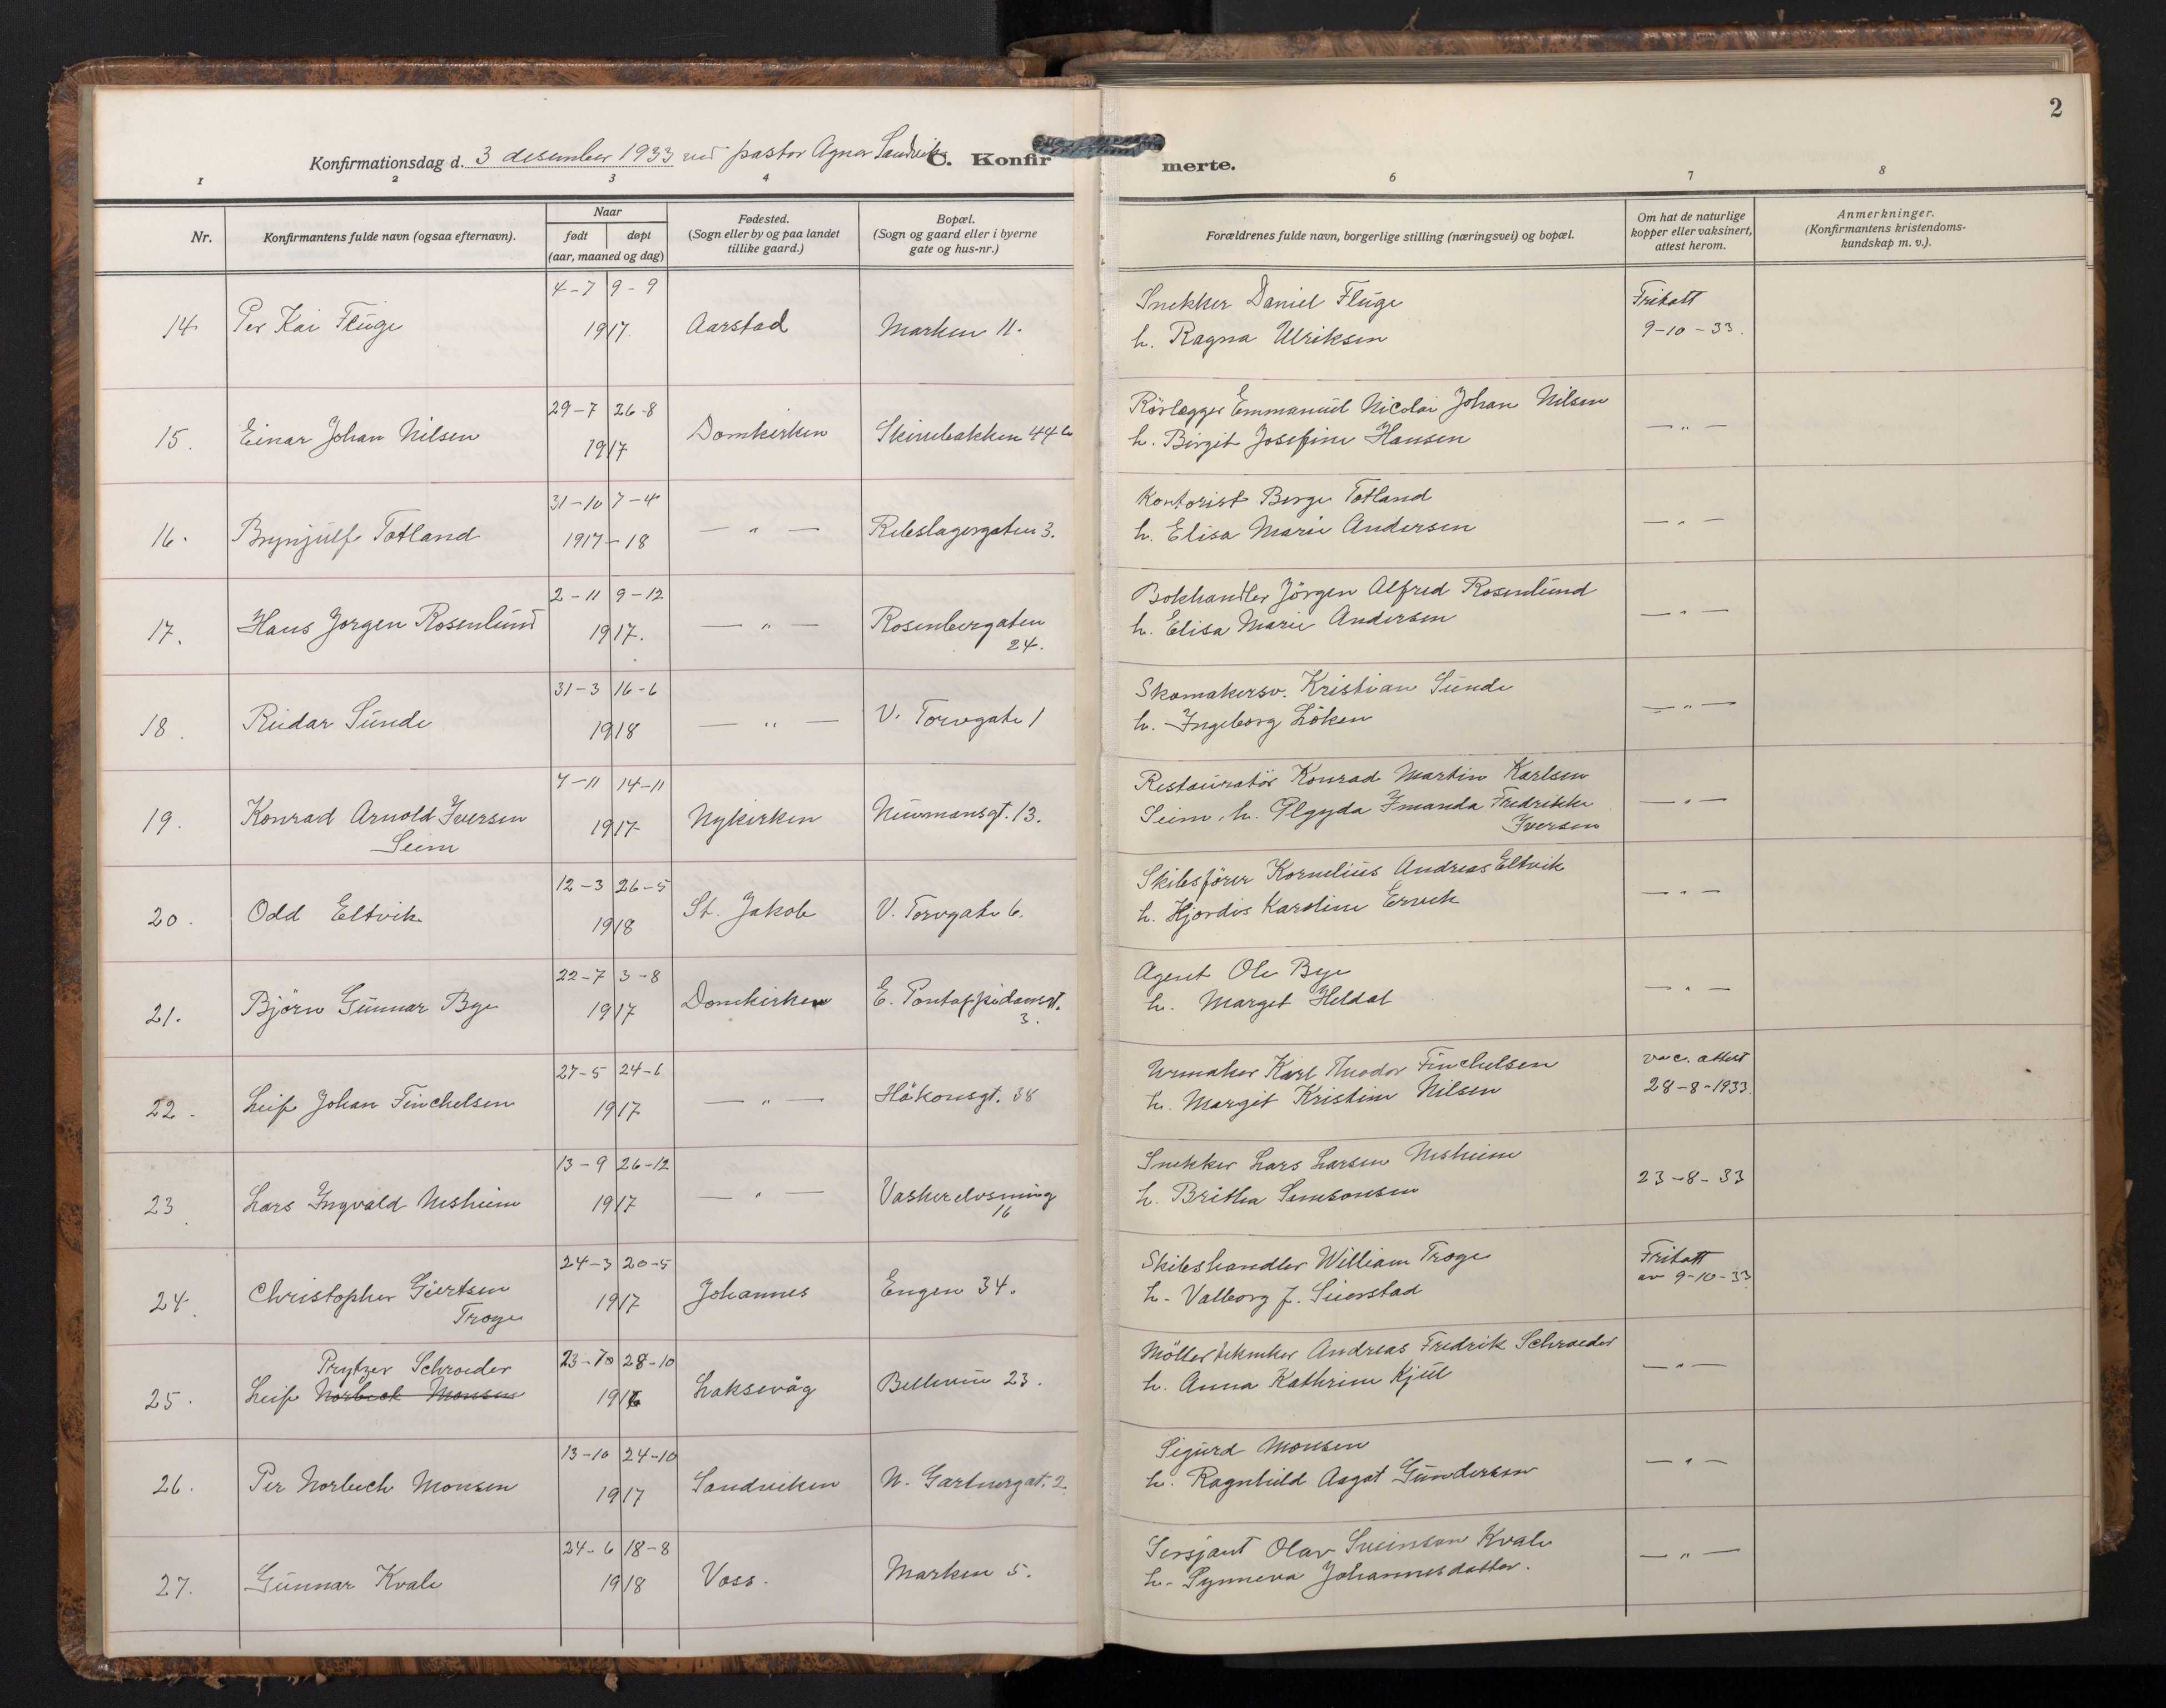 2
Konfirmationsdag d. 3 desember 1933 ved pastor Agnar Sandvik
C. Konfirmerte.
1 2 3 4 6 7 8
Nr.
Konfirmantens fulde navn (ogsaa efternavn).
Naar
født døpt
(aar, maaned og dag)
Fødested.
(Sogn eller by og paa landet
tillike gaard.)
Bopæl.
(Sogn og gaard eller i byerne
gate og hus-nr.)
Forældrenes fulde navn, borgerlige stilling (næringsvei) og bopæl.
Om hat de naturlige
kopper eller vaksinert,
attest herom.
Anmerkninger.
(Konfirmantens kristendoms-
kundskap m. v.).
4-7 9-9
14 Per Kai Fluge 1917. Aarstad Marken 11.
Snekker Daniel Fluge
h. Ragna Ulriksen
Fritatt
9-10-33.
29-7 26-8
15. Einar Johan Nilsen 1917 Domkirken Skivebakken 44 b
Rörlegger Emmanuel Nicolai Johan Nilsen
h. Birgit Josefine Hansen
— " —
31-10 7-4
16. Brynjulf Totland 1917-18 — " — Rebslagergaten 3.
Kontorist Berge Totland
h. Elisa Marie Andersen
— " —
2-11 9-12
17. Hans Jorgen Rosenlund 1917. — " — Rosenbergaten
24.
Bokhandler Jörgen Alfred Rosenlund
h. Elisa Marie Andersen
— " —
31-3 16-6
18. Reidar Sunde 1918 — " — V. Torvgate 1
Skomakersv. Kristian Sunde
h. Ingeborg Löken
— " —
7-11 14-11
19. Konrad Arnold Iversen
Seim
1917 Nykirken Neumansgt. 13.
Restauratör Konrad Martin Karlsen
Seim, h. Olgyda Imanda Fredrikke
Iversen
— " —
12-3 26-5
20. Odd Eltvik 1918 St. Jakob V. Torvgate 6.
Skibsförer Kornelius Andreas Eltvik
h. Hjordis Karoline Ervik
— " —
22-7 3-8
21. Björn Gunnar Bye 1917 Domkirken E. Pontoppidansgt.
3.
Agent Ole Bye
h. Marget Heldal
— " —
27-5 24-6
22. Leif Johan Finchelsen 1917 — " — Håkonsgt. 38
Urmaker Karl Theodor Finchelsen
h. Margit Kristine Nilsen
vac. attest
28-8-1933.
13-9 26-12
23. Lars Ingvald Nesheim 1917 — " — Vaskerelvsmug
16
Snekker Lars Larsen Nesheim
h. Britha Samsonsen
23-8-33
24-3 20-5
24. Christopher Giertsen
Troye
1917 Johannes Engen 34.
Skibshandler William Troye
h. Valborg J. Sierstad
Fritatt
av 9-10-33
23-10 28-10
Prytzer Schroeder
25. Leif Norbeck Monsen 1916 Laksevåg Bellevue 23.
Möllertekniker Andreas Fredrik Schroeder
h. Anna Kathrine Kjul
— " —
13-10 24-10
26. Per Norbech Monsen 1917 Sandviken N. Gartnergat. 2.
Sigurd Monsen
h. Ragnhild Aagot Gundersen
— " —
24-6 18-8
27. Gunnar Kvale 1918 Voss. Marken 5.
Sersjant Olav Sveinson Kvale
h. Synneva Johannesdatter.
— " —